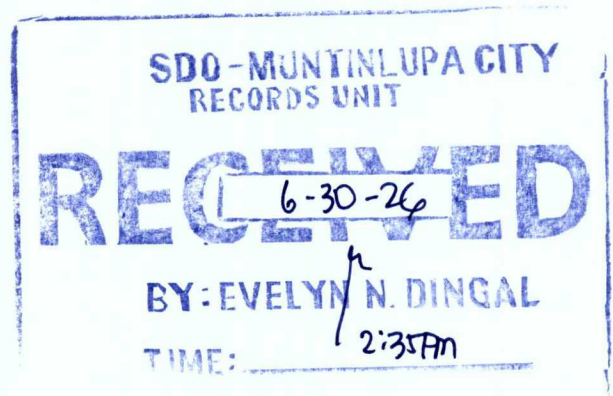 SDO-MUNTINLUPA CITY
RECORDS UNIT
RECEIVED
6-30-26
BY: EVELYN N. DINGAL
TIME: 2:35PM